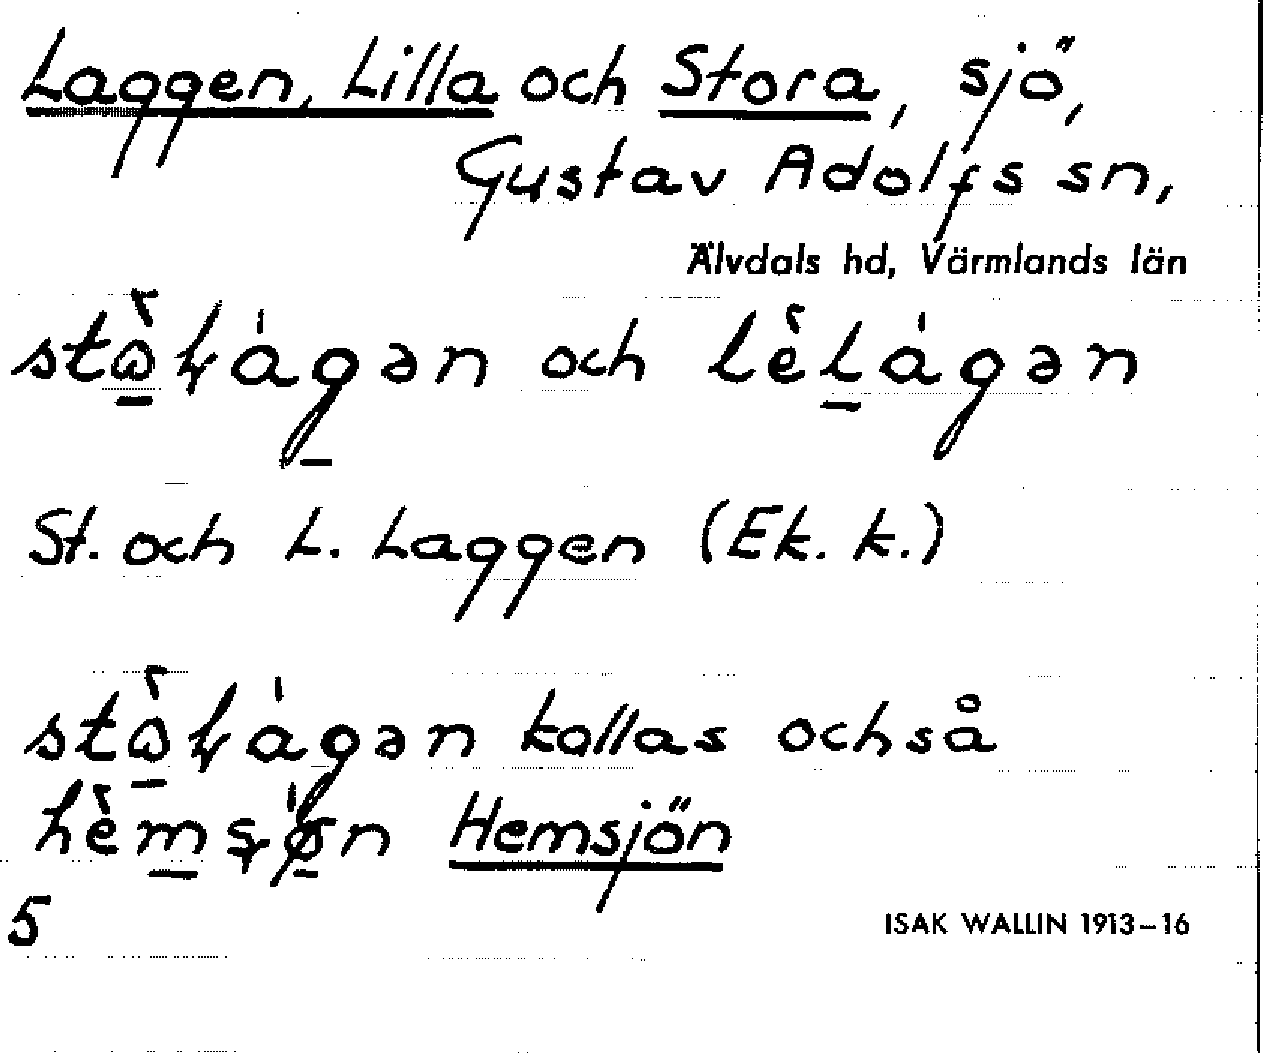 Laggen, Lilla och Stora, sjö,
Gustav Adolfs sn,
Älvdals hd, Värmlands län
och
St. och L. Laggen (Ek. k.)
kallas också
Hemsjön
5
ISAK WALLIN 1913–16